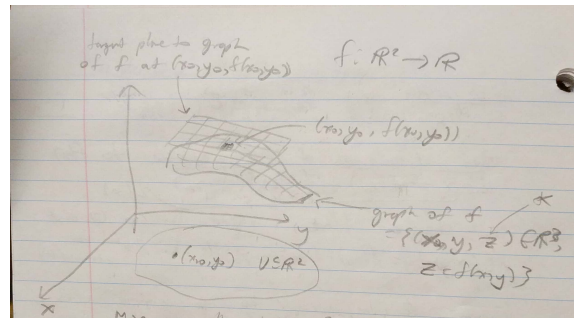 tangent plane to graph
of f at (x₀,y₀,f(x₀,y₀))
f: ℝ² → ℝ
(x₀,y₀, f(x₀,y₀))
graph of f
={(x, y, z) ∈ ℝ³,
z=f(x,y)}
*
y
•(x₀,y₀) U⊆ℝ²
x